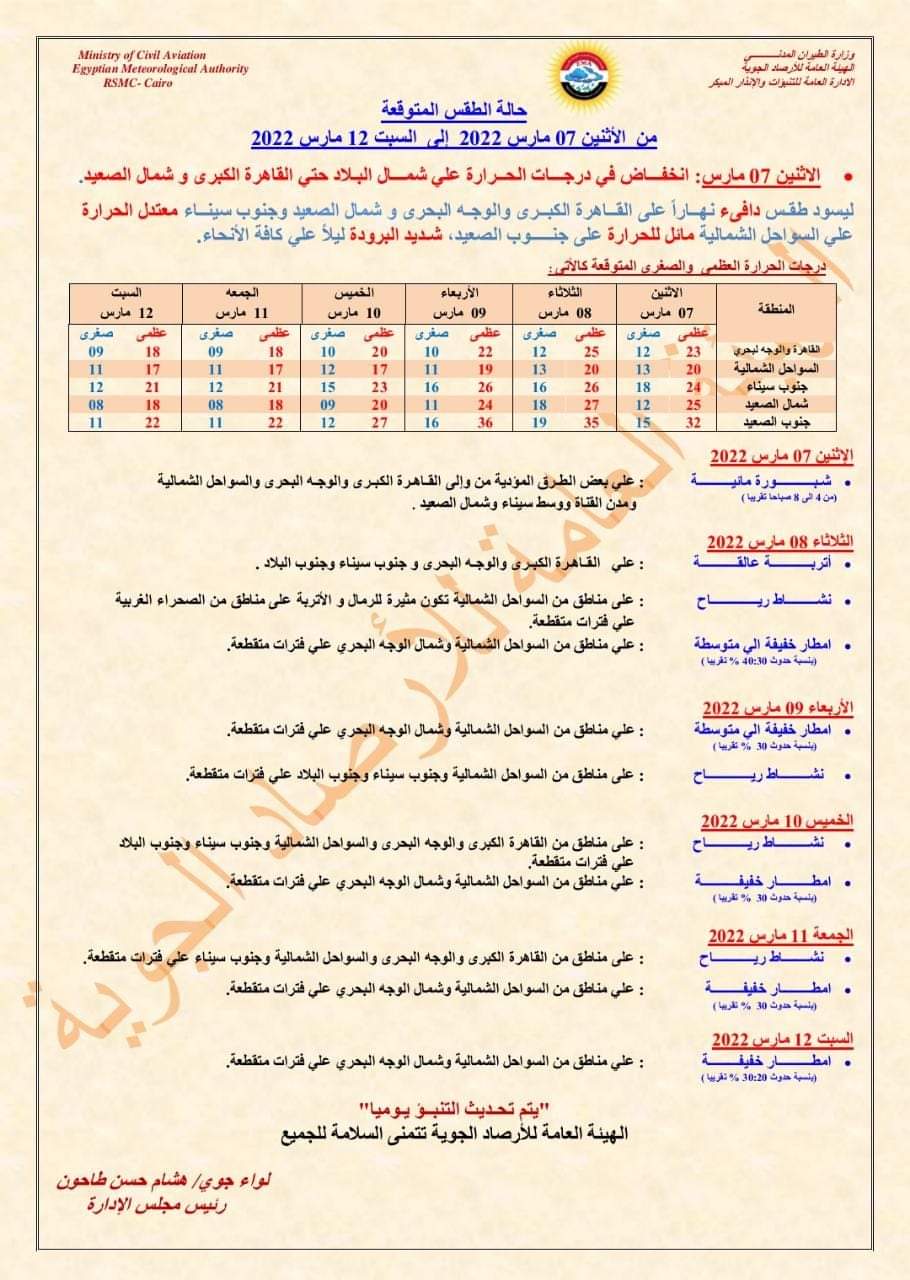 Ministry of Civil Aviation
Egyptian Meteorological Authority
RSMC- Cairo
وزارة الطيران المدنـــــي
الهيئة العامة للأرصاد الجوية
الادارة العامة للتنبؤات والإنذار المبكر
حالة الطقس المتوقعة
من الأثنين 07 مارس 2022 إلى السبت 12 مارس 2022
• الاثنين 07 مارس: انخفــاض في درجــات الحــرارة علي شمــال البــلاد حتي القاهرة الكبرى و شمال الصعيد.
ليسود طقـس دافىء نهـاراً على القــاهرة الكبــرى والوجـه البحرى و شمال الصعيد وجنوب سينـاء معتدل الحرارة
علي السواحل الشمالية مائل للحرارة على جنــوب الصعيد، شـديد البرودة ليلاً علي كافة الأنحاء.
درجات الحرارة العظمي والصغرى المتوقعة كالأتي:
المنطقة الاثنين 07 مارس الثلاثاء 08 مارس الأربعاء 09 مارس الخميس 10 مارس الجمعه 11 مارس السبت 12 مارس
عظمى صغرى عظمى صغرى عظمى صغرى عظمى صغرى عظمى صغرى عظمى صغرى
القاهرة والوجه لبحري 23 12 25 12 22 10 20 10 18 09 18 09
السواحل الشمالية 20 13 20 13 19 11 17 12 17 11 17 11
جنوب سيناء 24 18 26 16 26 16 23 15 21 12 21 12
شمال الصعيد 25 12 27 18 24 11 20 09 18 08 18 08
جنوب الصعيد 32 15 35 19 36 16 27 12 22 11 22 11
الإثنين 07 مارس 2022
• شبـــورة مائيـــة : علي بعض الطرق المؤدية من وإلى القاهرة الكبرى والوجه البحرى والسواحل الشمالية
(من 4 الى 8 صباحا تقريبا ) ومدن القناة ووسط سيناء وشمال الصعيد .
الثلاثاء 08 مارس 2022
• أتربـــة عالقـــة : علي القاهرة الكبرى والوجه البحرى و جنوب سيناء وجنوب البلاد .
• نشـــاط ريـــاح : على مناطق من السواحل الشمالية تكون مثيرة للرمال و الأتربة على مناطق من الصحراء الغربية
علي فترات متقطعة.
• امطار خفيفة الي متوسطة : علي مناطق من السواحل الشمالية وشمال الوجه البحري علي فترات متقطعة.
(بنسبة حدوث 40:30 % تقريبا )
الأربعاء 09 مارس 2022
• امطار خفيفة الي متوسطة : علي مناطق من السواحل الشمالية وشمال الوجه البحري علي فترات متقطعة.
(بنسبة حدوث 30 % تقريبا )
• نشـــاط ريـــاح : على مناطق من السواحل الشمالية وجنوب سيناء وجنوب البلاد علي فترات متقطعة.
الخميس 10 مارس 2022
• نشـــاط ريـــاح : على مناطق من القاهرة الكبرى والوجه البحرى والسواحل الشمالية وجنوب سيناء وجنوب البلاد
علي فترات متقطعة.
• امطـــار خفيفـــة : علي مناطق من السواحل الشمالية وشمال الوجه البحري علي فترات متقطعة.
(بنسبة حدوث 30 % تقريبا )
الجمعة 11 مارس 2022
• نشـــاط ريـــاح : على مناطق من القاهرة الكبرى والوجه البحرى والسواحل الشمالية وجنوب سيناء علي فترات متقطعة.
• امطـــار خفيفـــة : علي مناطق من السواحل الشمالية وشمال الوجه البحري علي فترات متقطعة.
(بنسبة حدوث 30 % تقريبا )
السبت 12 مارس 2022
• امطـــار خفيفـــة : علي مناطق من السواحل الشمالية وشمال الوجه البحري علي فترات متقطعة.
(بنسبة حدوث 30:20 % تقريبا )
"يتم تحـديث التنبــؤ يـوميا"
الهيئة العامة للأرصاد الجوية تتمنى السلامة للجميع
لواء جوي/ هشام حسن طاحون
رئيس مجلس الإدارة
الهيئة العامة للأرصاد الجوية